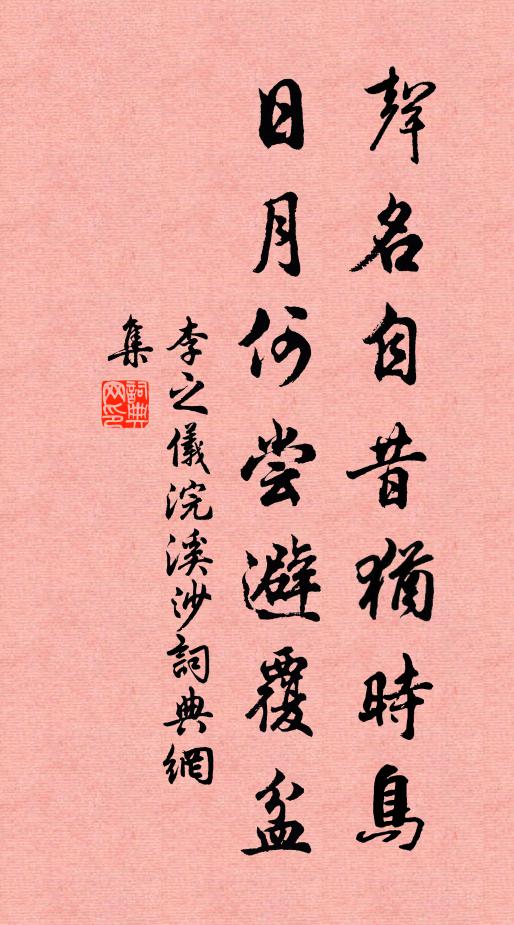 聲名自昔猶時鳥
日月何嘗避覆盆
李之儀浣溪沙詞典網
集
詞典網印